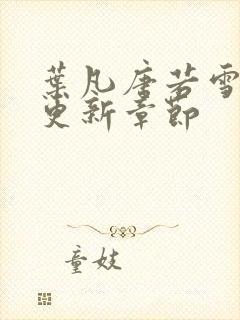 葉凡唐若雪
更新章節
童妓